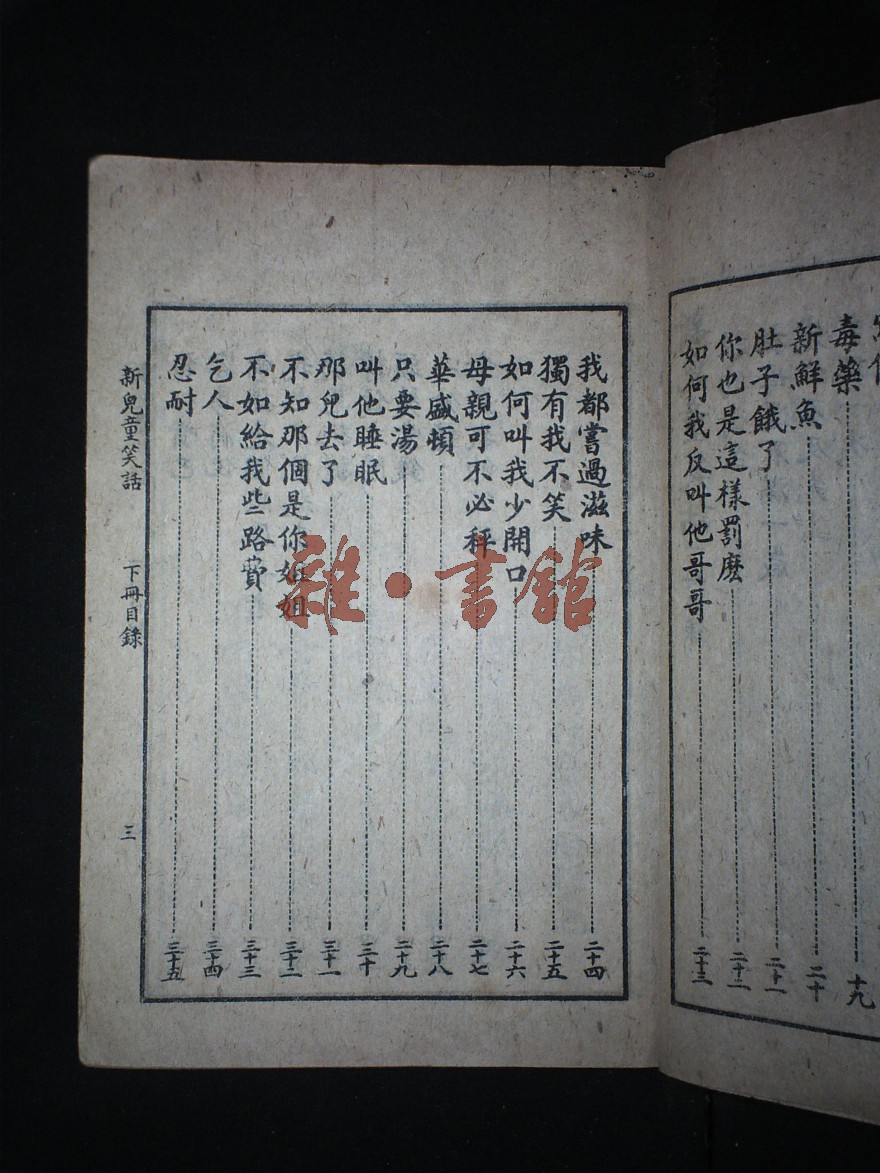 毒藥 十九
新鮮魚 二十
肚子餓了 二十一
你也是這樣罰麽 二十二
如何我反叫他哥哥 二十三
我都嘗過滋味 二十四
獨有我不笑 二十五
如何叫我少開口 二十六
母親可不必秤 二十七
華盛頓 二十八
只要湯 二十九
叫他睡眠 三十
那兒去了 三十一
不知那個是你姐姐 三十二
不如給我些路費 三十三
乞人 三十四
忍耐 三十五
新兒童笑話 下冊目錄 三
雜·書館